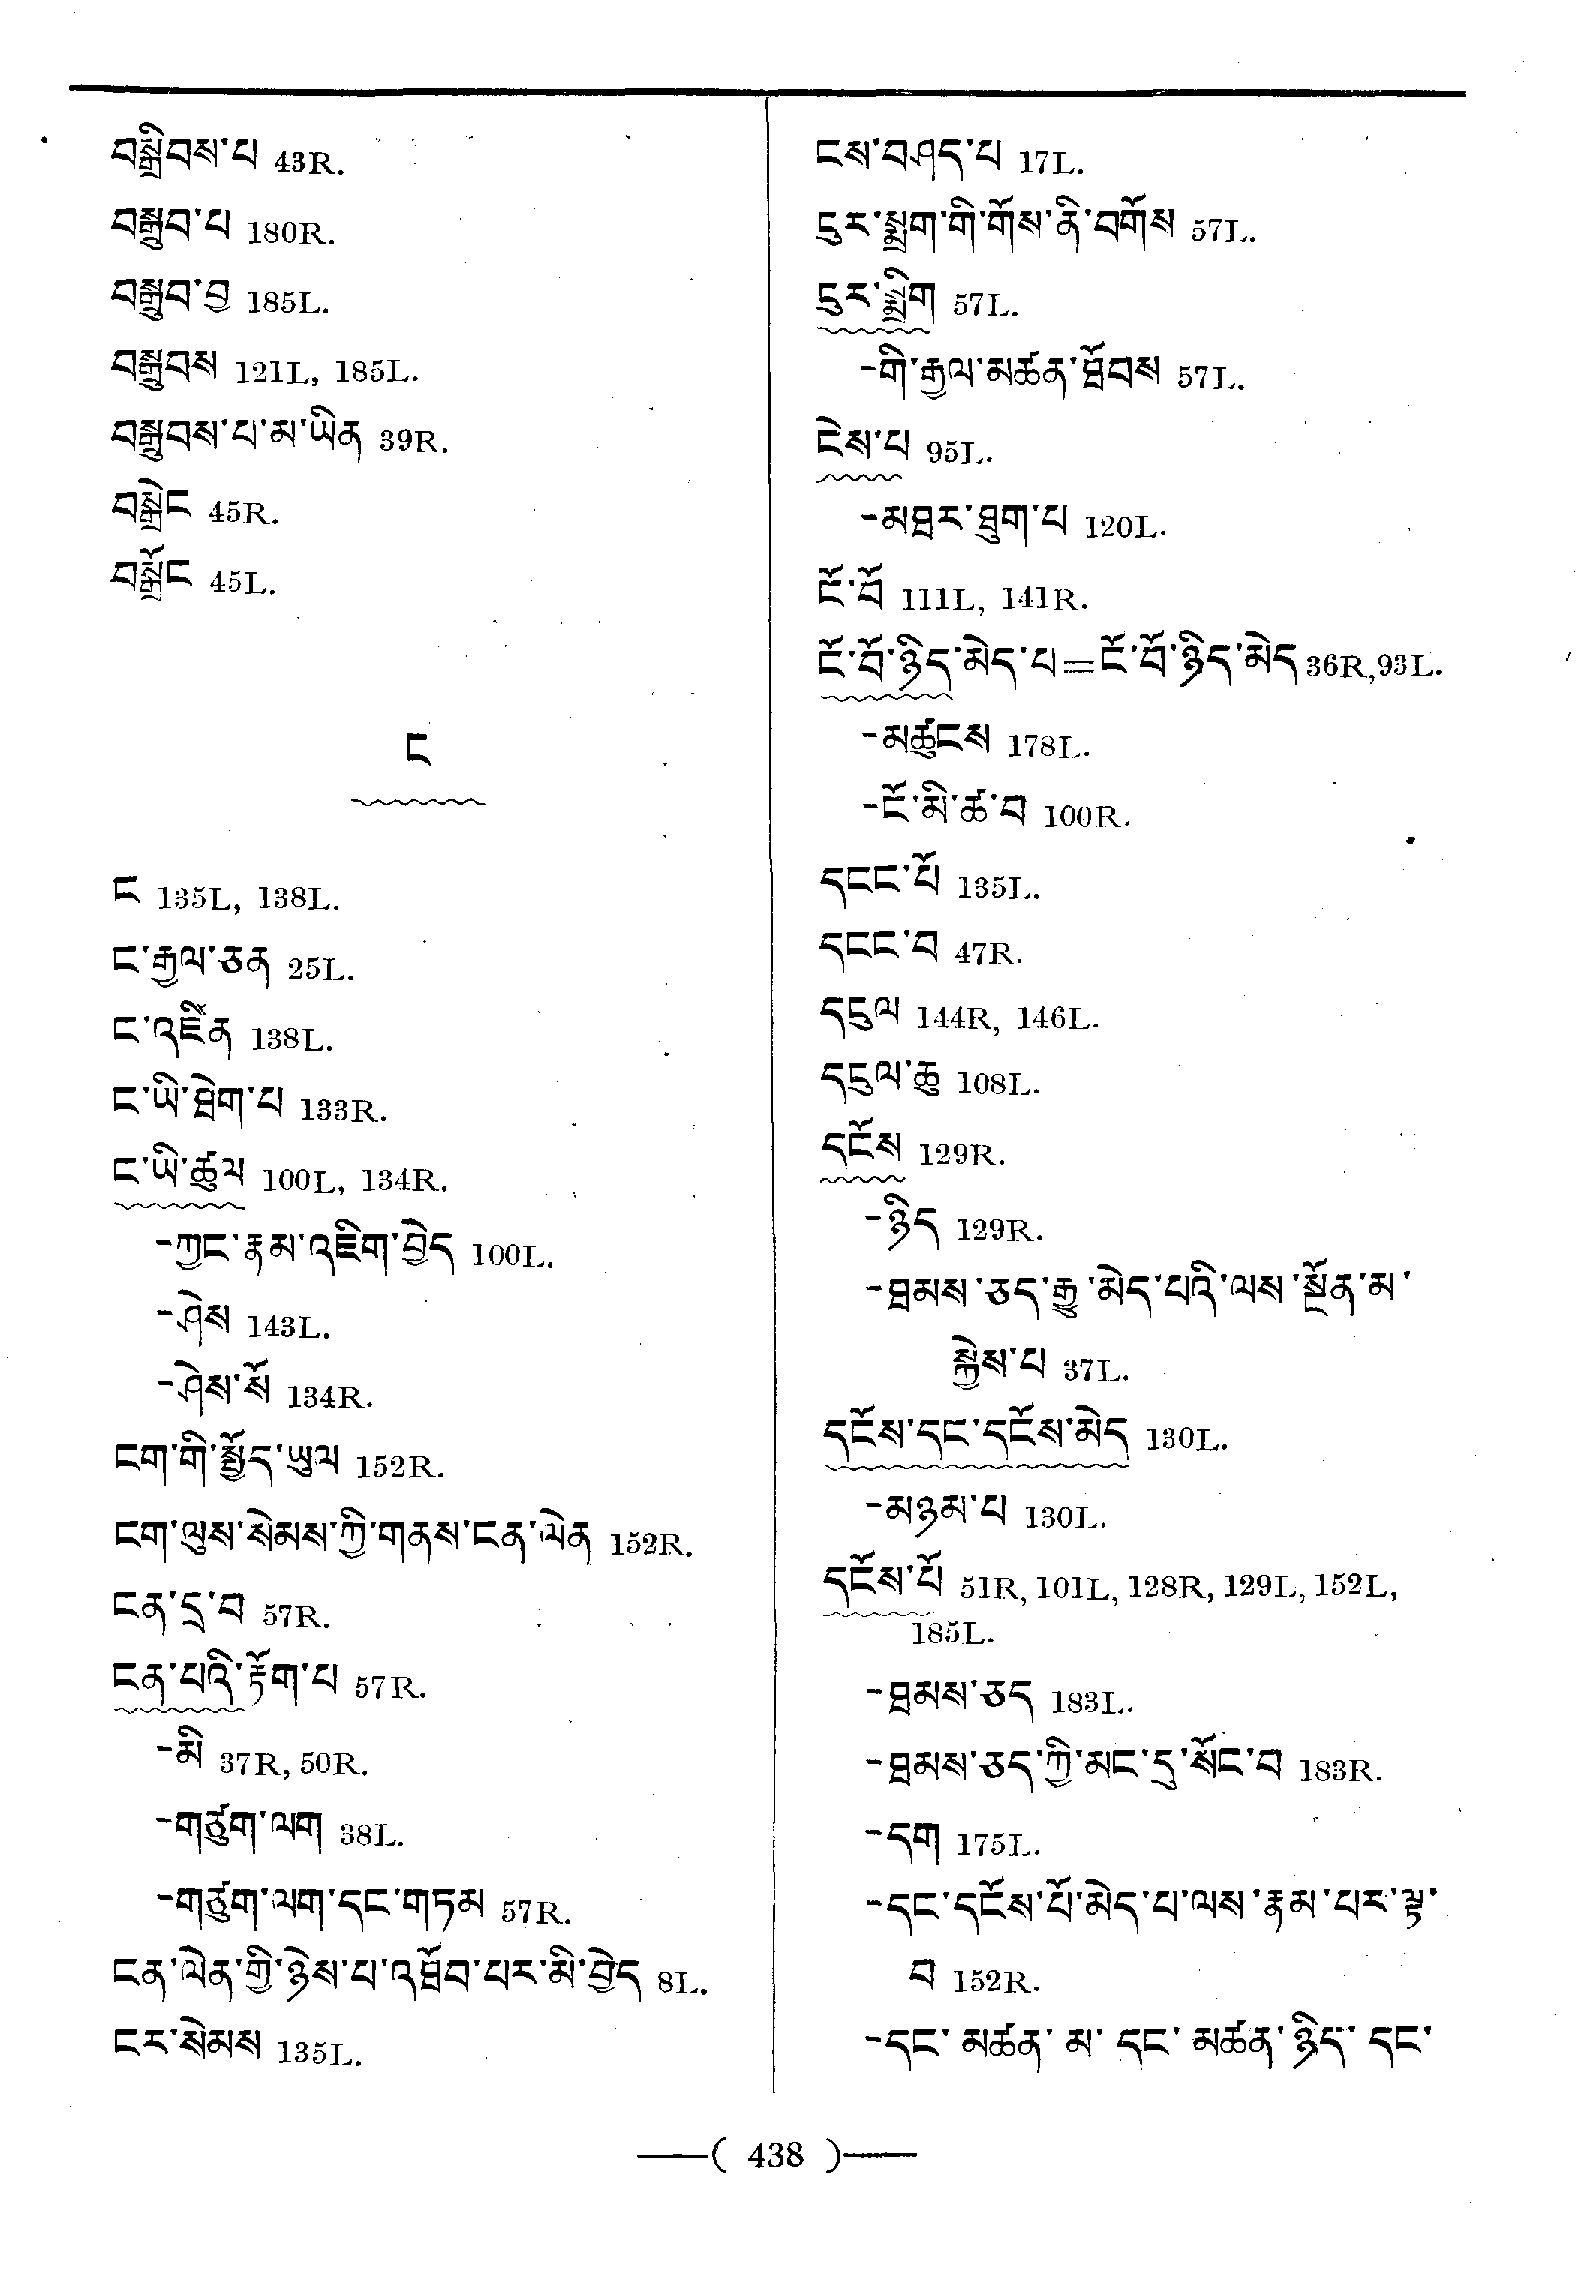 བསྒྲིབས་པ 43R.
བསྒྲུབ་པ 180R.
བསྒྲུབ་བྱ 185L.
བསྒྲུབས 121L, 185L.
བསྒྲུབས་པ་མ་ཡིན 39R.
བསྒྲེང 45R.
བསྒྲོང 45L.
ང
ང 135L, 138L.
ང་རྒྱལ་ཅན 25L.
ང་འཛིན 138L.
ང་ཡི་ཐེག་པ 133R.
ང་ཡི་ཚུལ 100L, 134R.
-ཀྱང་རྣམ་འཇིག་བྱེད 100L.
-ཤེས 143L.
-ཤེས་སོ 134R.
ངག་གི་སྤྱོད་ཡུལ 152R.
ངག་ལུས་སེམས་ཀྱི་གནས་ངན་ལེན 152R.
ངན་དྲ་བ 57R.
ངན་པའི་རྟོག་པ 57R.
-མི 37R, 50R.
-གཙུག་ལག 38L.
-གཙུག་ལག་དང་གཏམ 57R.
ངན་ལེན་གྱི་ཉེས་པ་འཐོབ་པར་མི་བྱེད 8L.
ངར་སེམས 135L.
ངས་བཤད་པ 17L.
ངུར་སྨྲག་གི་གོས་ནི་བགོས 57L.
ངུར་སྨྲིག 57L.
-གི་རྒྱལ་མཚན་ཐོབས 57L.
ངེས་པ 95L.
-མཐར་ཐུག་པ 120L.
ངོ་བོ 111L, 141R.
ངོ་བོ་ཉིད་མེད་པ=ངོ་བོ་ཉིད་མེད 36R,93L.
-མཚུངས 178L.
-ངོ་མི་ཚ་བ 100R.
དངང་པོ 135L.
དངང་བ 47R.
དངུལ 144R, 146L.
དངུལ་ཆུ 108L.
དངོས 129R.
-ཉིད 129R.
-ཐམས་ཅད་རྒྱུ་མེད་པའི་ལས་སྔོན་མ་
སྐྱེས་པ 37L.
དངོས་དང་དངོས་མེད 130L.
-མཉམ་པ 130L.
དངོས་པོ 51R, 101L, 128R, 129L, 152L,
185L.
-ཐམས་ཅད 183L.
-ཐམས་ཅད་ཀྱི་མང་དུ་སོང་བ 183R.
-དག 175L.
-དང་དངོས་པོ་མེད་པ་ལས་རྣམ་པར་ལྟ་
བ 152R.
-དང་ མཚན་ མ་ དང་ མཚན་ཉིད་ དང་
—( 438 )—